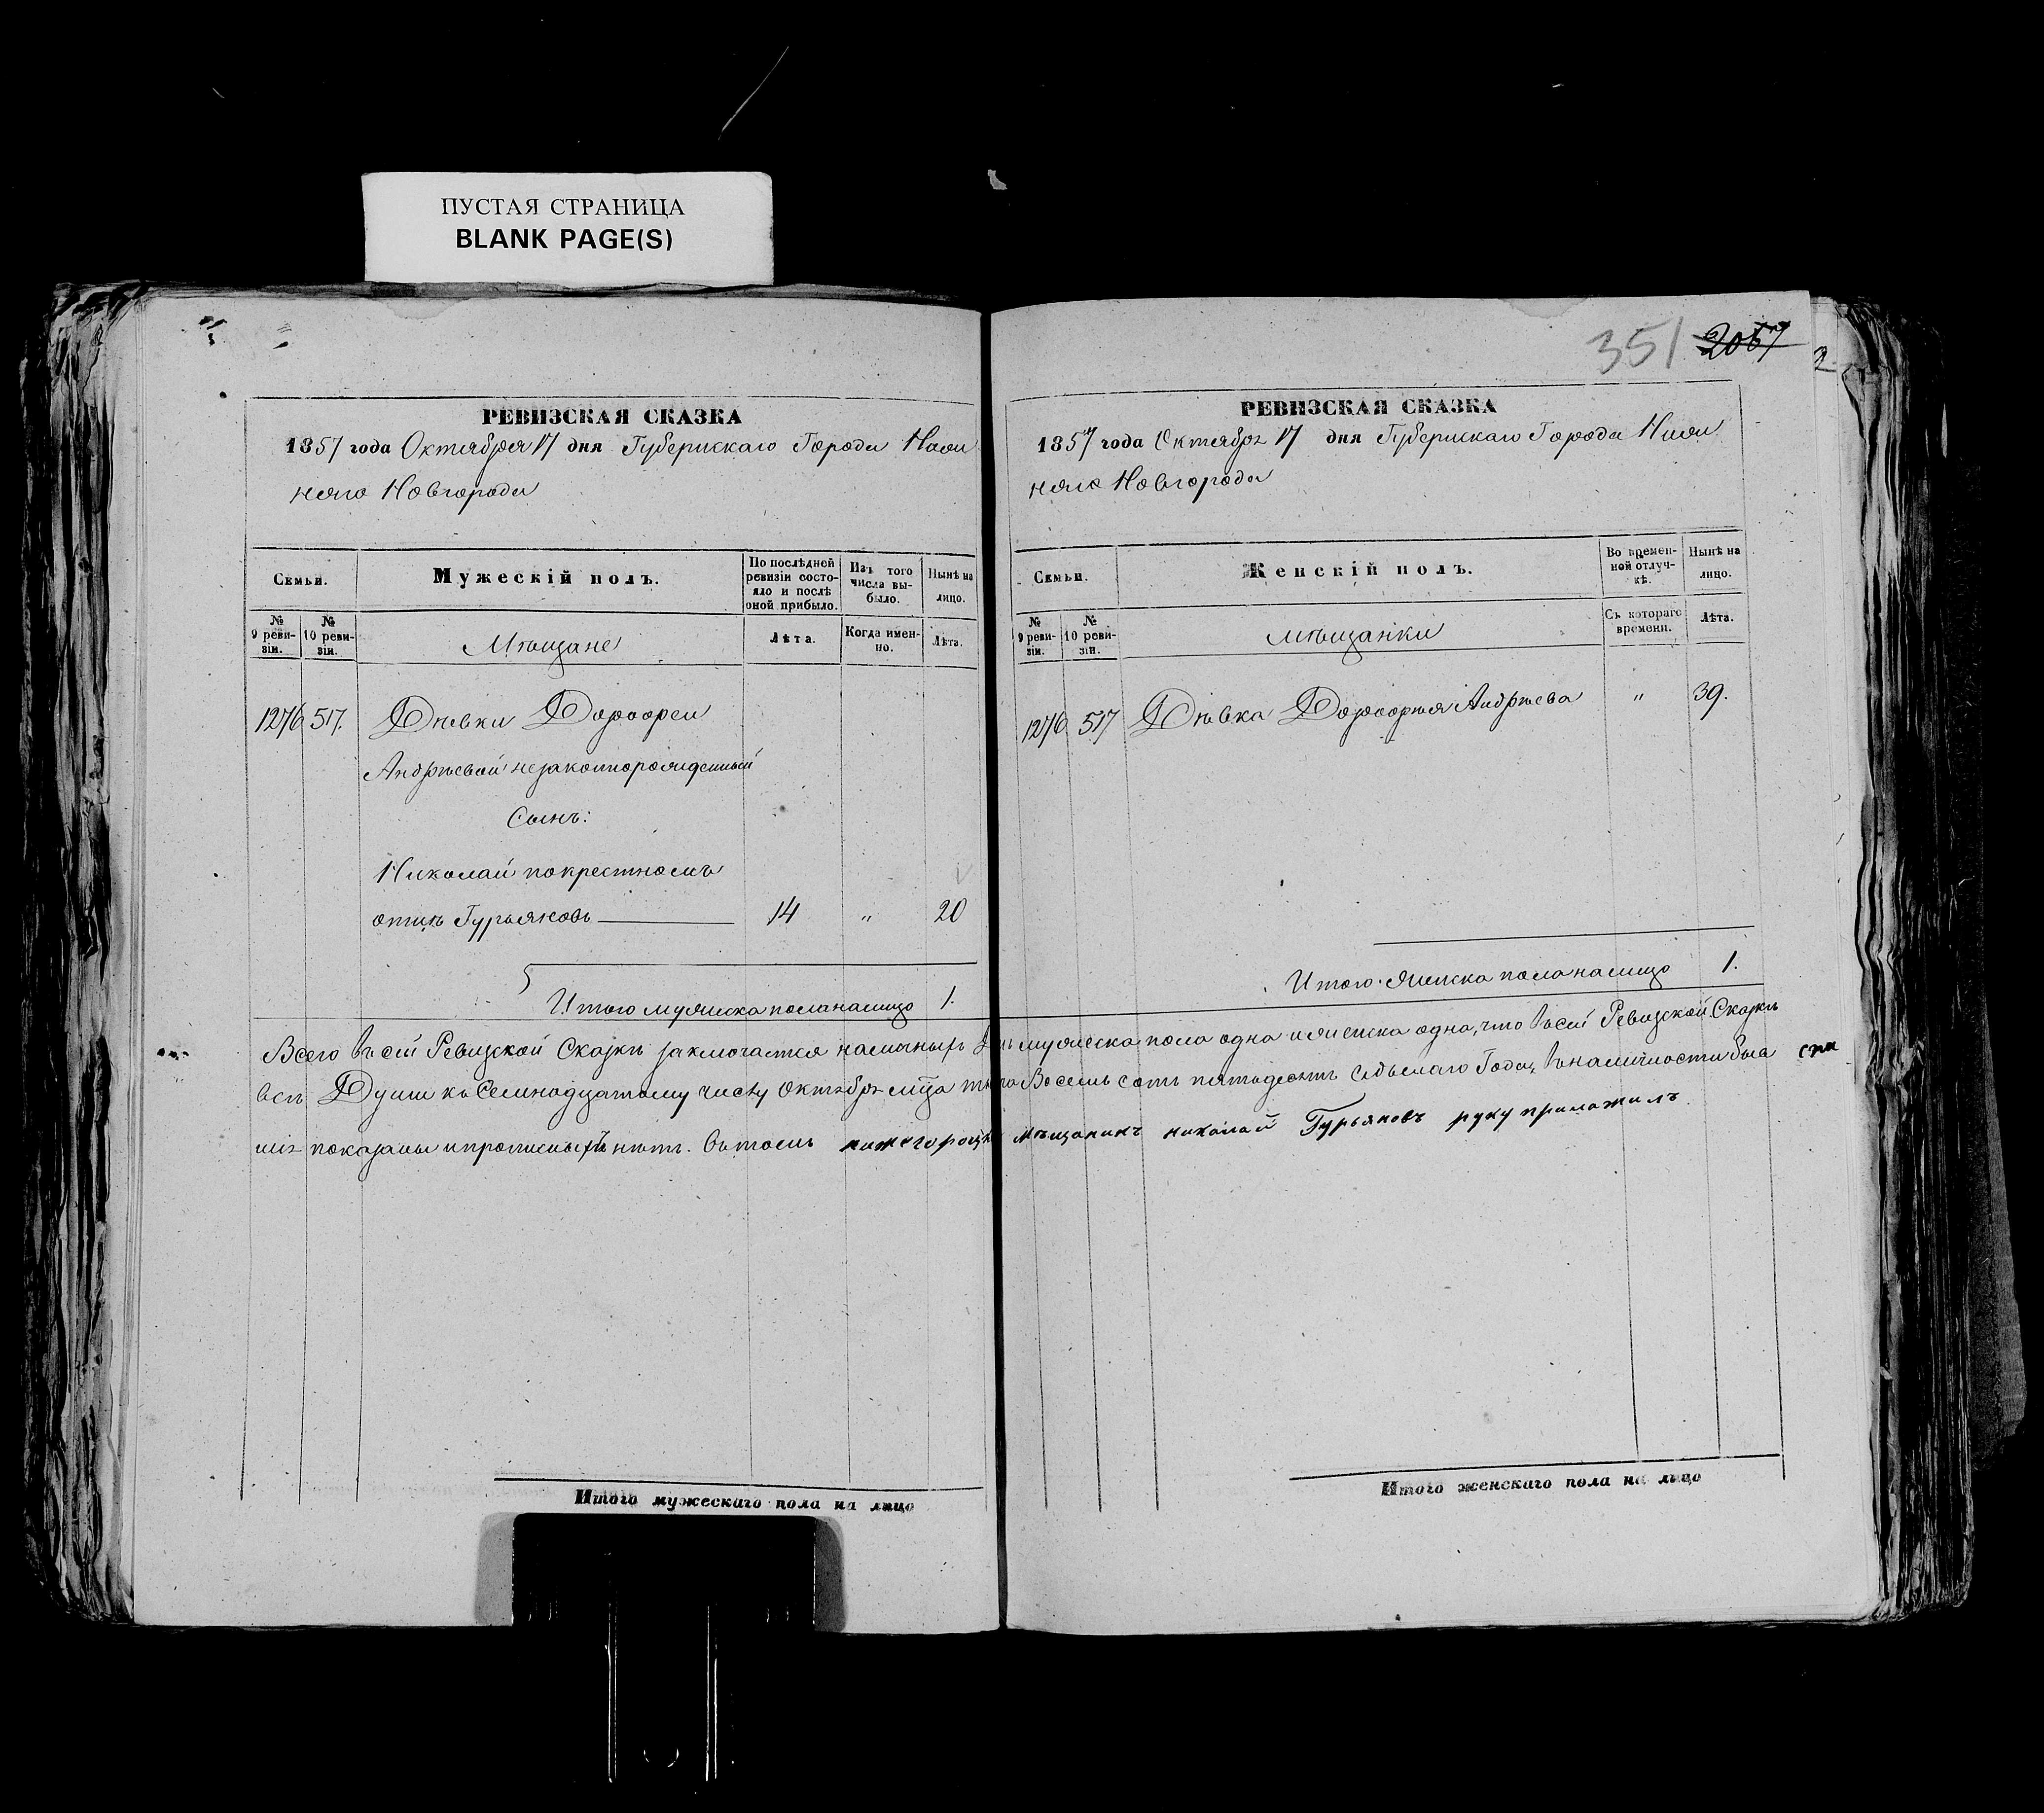 ПУСТАЯ СТРАНИЦА
BLANK PAGE(S)
РЕВИЗСКАЯ СКАЗКА
1857 года Октября 17 дня Губернскаго Города Ниж
няго Новгорода
Семьи.
Мужескій полъ.
По послѣдней ревизіи состо-
яло и послѣ
оной прибыло.
Изъ того
числа вы-
было.
Нынѣ на
лицо.
№
9 реви-
зіи.
№
10 реви-
зіи.
Мѣщане
Лѣта.
Когда имен-
но.
Лѣта.
1276 517. Дѣвки Дороѳеи
Андрѣевой незаконнорожденный
Сынъ:
Николай покрестномъ
отцѣ Гурьяновъ 14 " 20
Итого мужеска пола налицо 1.
351 2067
РЕВИЗСКАЯ СКАЗКА
1857 года Октября 17 дня Губернскаго Города Ниж
няго Новгорода
Семьи.
Женскій полъ.
Во времен-
ной отлуч-
кѣ.
Нынѣ на
лицо.
№
9 реви-
зіи.
№
10 реви-
зіи.
мѣщанки
Съ котораго
времени.
Лѣта.
1276 517 Дѣвка Дороѳея Андрѣева " 39.
Итого женска пола налицо 1.
Всего въ сей Ревизской Сказкѣ заключается наличныхъ мужеска пола одна и женска одна, что въ сей Ревизской Сказкѣ
всѣ Души къ Семнадцатому числу Октября мца Восемь сотъ пятьдесятъ седьмаго Года, въ наличности
показаны и прописныхъ нѣтъ. въ томъ нижегороцк мѣщанинъ николай Гурьяновъ руку приложилъ
Итого мужескаго пола на лицо
Итого женскаго пола на лицо